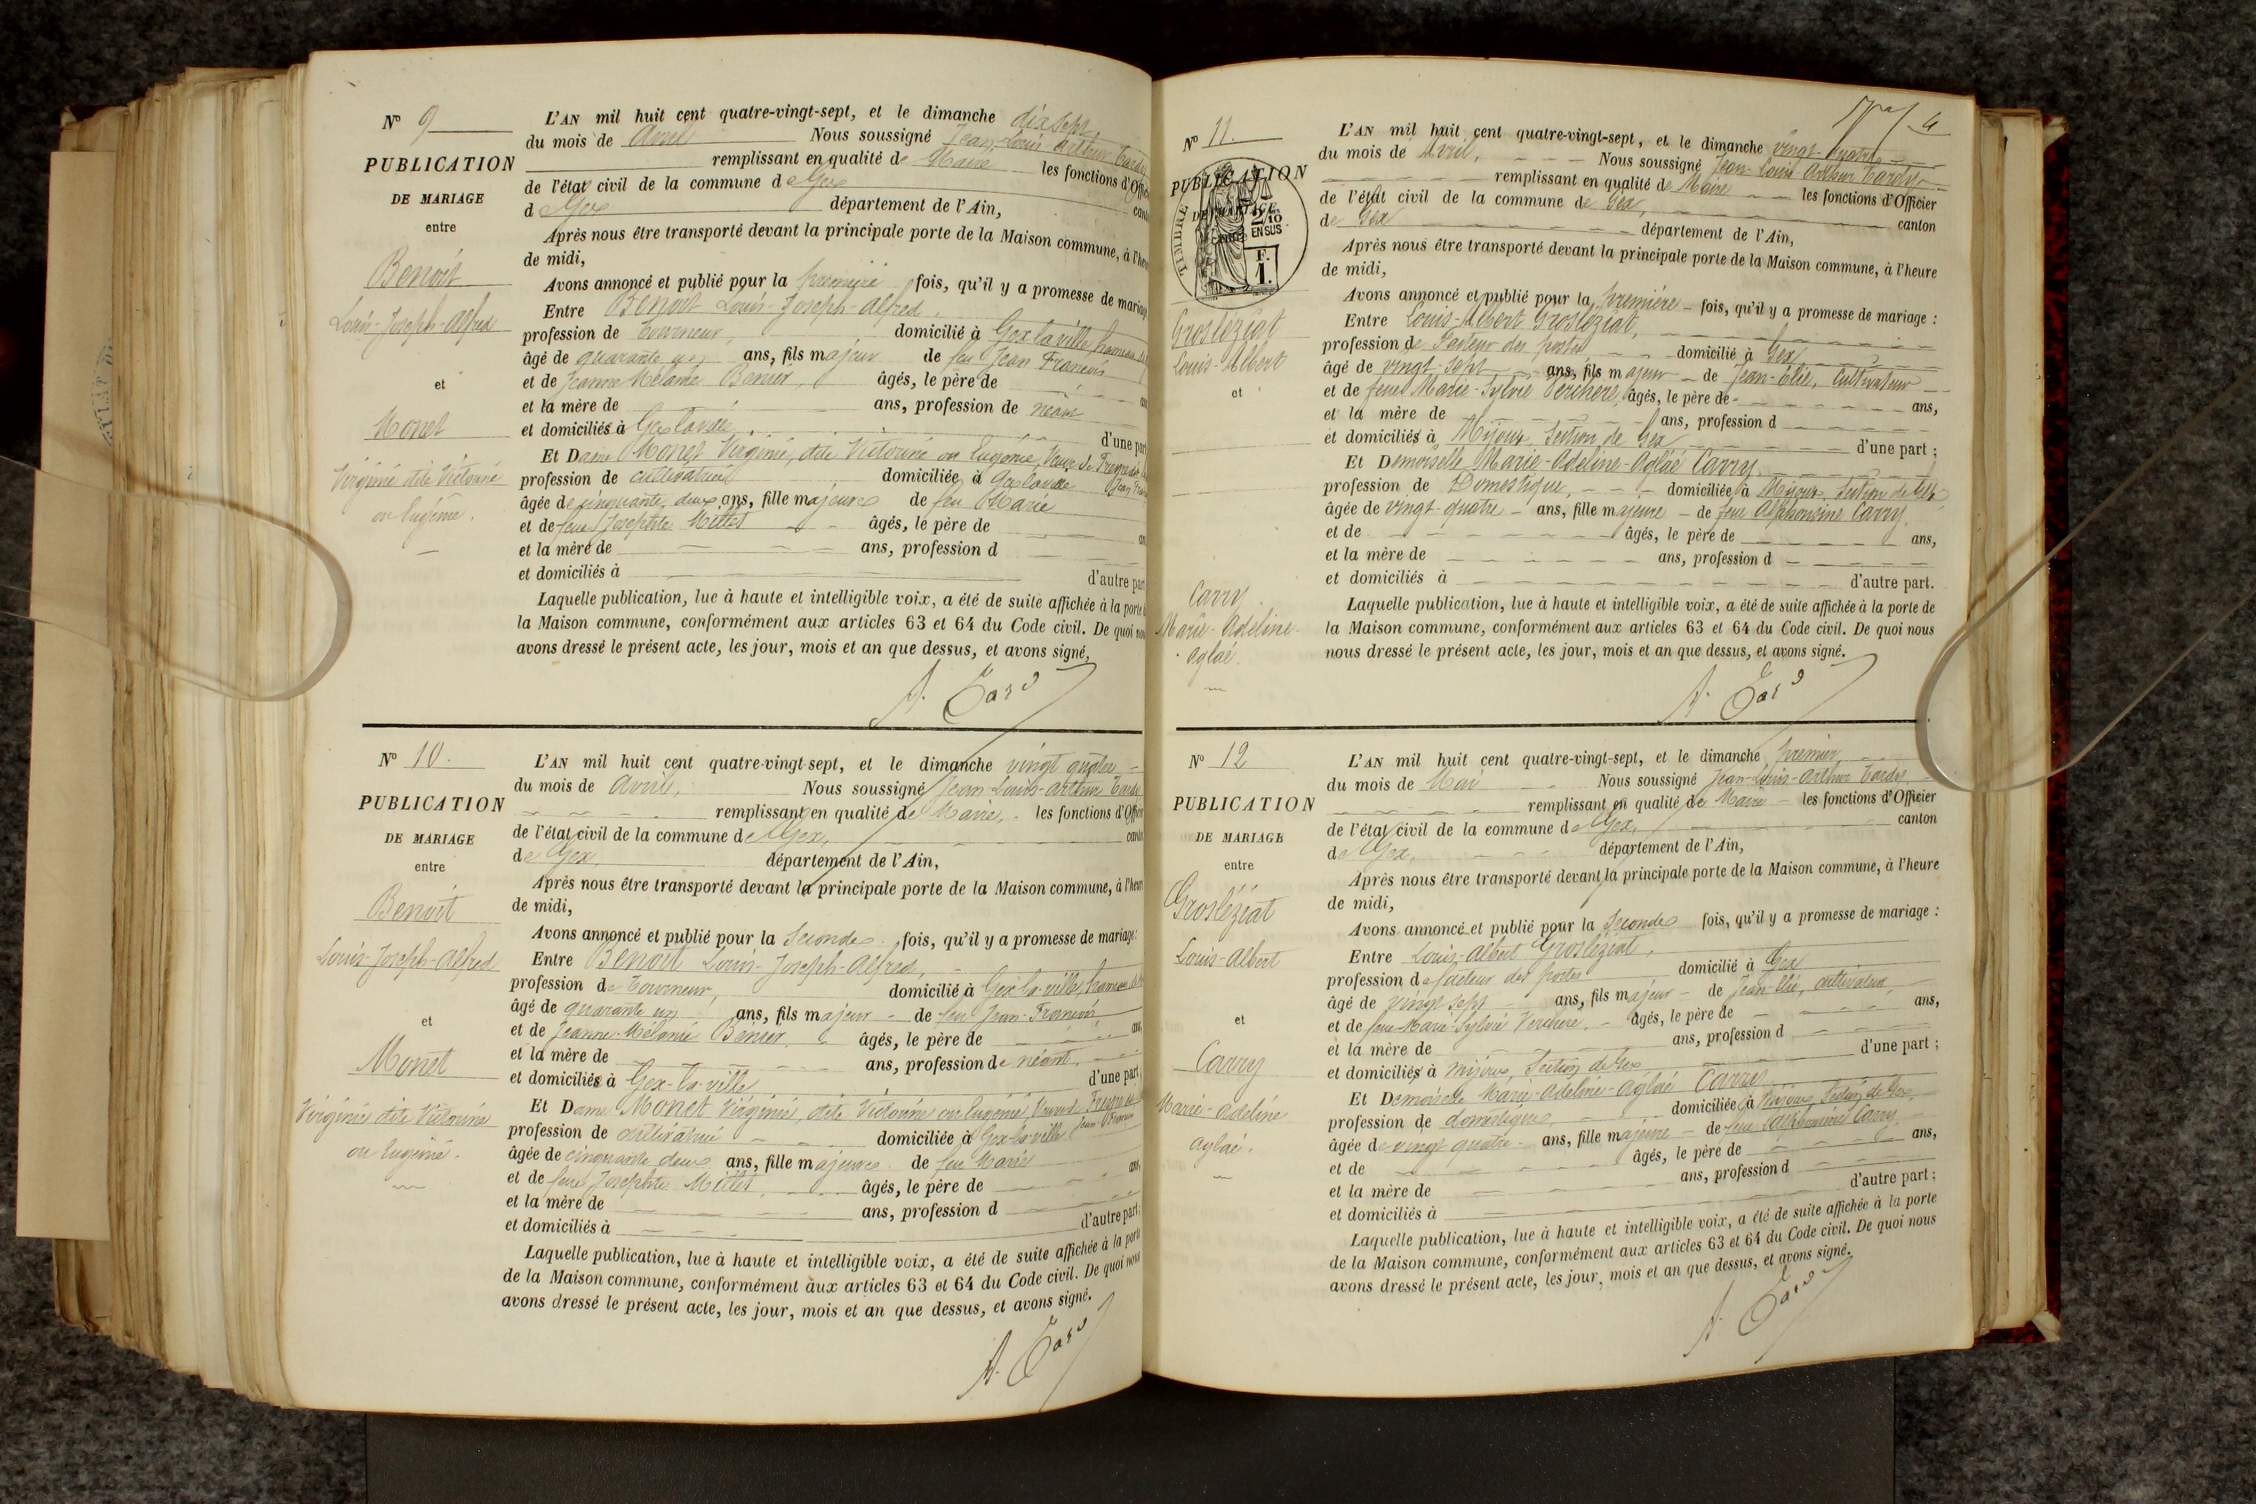 N° 9
PUBLICATION
DE MARIAGE
entre
Benoit
Louis-Joseph-Alfred
et
Monet
Virginie dite Victorine
ou Eugénie.
L'AN mil huit cent quatre-vingt-sept, et le dimanche dix sept
du mois de Avril Nous soussigné Jean-Louis Arthur Tardy
remplissant en qualité de Maire les fonctions d'Offic
de l'état civil de la commune de Gex cant
de Gex département de l'Ain,
Après nous être transporté devant la principale porte de la Maison commune, à l'heu
de midi,
Avons annoncé et publié pour la première fois, qu'il y a promesse de mariag
Entre Benoit Louis-Joseph-Alfred,
profession de Tourneur, domicilié à Gex la ville hameau
âgé de quarante un ans, fils majeur de feu Jean François
et de Jeanne Mélanie Benier, âgés, le père de an
et la mère de ans, profession de néant
et domiciliés à Gex la ville d'une part
Et Dame Monet Virginie, dite Victorine ou Eugénie, Veuve de
profession de cultivatrice domiciliée à Gex la ville Jean
âgée de cinquante deux ans, fille majeure de feu Marie
et de feue Josephte Millet âgés, le père de an
et la mère de ans, profession d
et domiciliés à d'autre part
Laquelle publication, lue à haute et intelligible voix, a été de suite affichée à la porte
la Maison commune, conformément aux articles 63 et 64 du Code civil. De quoi nou
avons dressé le présent acte, les jour, mois et an que dessus, et avons signé,
A. Tardy
N° 10.
PUBLICATION
DE MARIAGE
entre
Benoit
Louis-Joseph-Alfred
et
Monet
Virginie dite Victorine
ou Eugénie.
L'AN mil huit cent quatre-vingt-sept, et le dimanche vingt quatre
du mois de Avril, Nous soussigné Jean-Louis-Arthur Tardy
remplissant en qualité de Maire, les fonctions d'Officier
de l'état civil de la commune de Gex, canton
de Gex, département de l'Ain,
Après nous être transporté devant la principale porte de la Maison commune, à l'heure
de midi,
Avons annoncé et publié pour la Seconde fois, qu'il y a promesse de mariage:
Entre Benoit Louis-Joseph-Alfred,
profession de Tourneur, domicilié à Gex-la-ville, hameau
âgé de quarante un ans, fils majeur de feu Jean-François
et de Jeanne-Mélanie Bénier. âgés, le père de ans,
et la mère de ans, profession de néant,
et domiciliés à Gex-la-ville d'une part,
Et Dame Monet Virginie, dite Victorine ou Eugénie Veuve de
profession de cultivatrice domiciliée à Gex-la-ville Jean François
âgée de cinquante deux ans, fille majeure de feu Marie
et de feue Josephte Millet, âgés, le père de ans,
et la mère de ans, profession d
et domiciliés à d'autre part;
Laquelle publication, lue à haute et intelligible voix, a été de suite affichée à la porte
de la Maison commune, conformément aux articles 63 et 64 du Code civil. De quoi nous
avons dressé le présent acte, les jour, mois et an que dessus, et avons signé.
A. Tardy
4
N° 11.
PUBLICATION
DE MARIAGE
TIMBRE
2/10
EN SUS
F.
1.
Groslézіat
Louis-Albert
et
Carry
Marie-Adeline-
Aglaé.
L'AN mil huit cent quatre-vingt-sept, et le dimanche vingt-quatre
du mois de Avril, Nous soussigné Jean-Louis-Arthur Tardy
remplissant en qualité de Maire les fonctions d'Officier
de l'état civil de la commune de Gex, canton
de Gex département de l'Ain,
Après nous être transporté devant la principale porte de la Maison commune, à l'heure
de midi,
Avons annoncé et publié pour la première fois, qu'il y a promesse de mariage :
Entre Louis-Albert Grosléziat,
profession de Facteur des postes domicilié à Gex
âgé de vingt-sept ans, fils majeur de Jean-Elie, cultivateur
et de feue Marie-Sylvie Verchère, âgés, le père de ans,
et la mère de ans, profession d
et domiciliés à Mijoux, Section de Gex d'une part ;
Et Demoiselle Marie-Adeline-Aglaé Carry,
profession de Domestique, domiciliée à Mijoux, Section de Gex,
âgée de vingt-quatre ans, fille majeure de feue Alphonsine Carry,
et de âgés, le père de ans,
et la mère de ans, profession d
et domiciliés à d'autre part.
Laquelle publication, lue à haute et intelligible voix, a été de suite affichée à la porte de
la Maison commune, conformément aux articles 63 et 64 du Code civil. De quoi nous
nous dressé le présent acte, les jour, mois et an que dessus, et avons signé.
A. Tardy
N° 12
PUBLICATION
DE MARIAGE
entre
Grosléziat
Louis-Albert
et
Carry
Marie-Adeline
Aglaé.
L'AN mil huit cent quatre-vingt-sept, et le dimanche premier
du mois de Mai Nous soussigné Jean-Louis-Arthur Tardy,
remplissant en qualité de Maire les fonctions d'Officier
de l'état civil de la commune de Gex, canton
de Gex, département de l'Ain,
Après nous être transporté devant la principale porte de la Maison commune, à l'heure
de midi,
Avons annoncé et publié pour la Seconde fois, qu'il y a promesse de mariage :
Entre Louis-Albert Grosléziat,
profession de facteur des postes domicilié à Gex
âgé de vingt sept ans, fils majeur de Jean-Elie, cultivateur,
et de feue Marie-Sylvie Verchère, âgés, le père de ans,
et la mère de ans, profession d
et domiciliés à Mijoux, Section de Gex, d'une part ;
Et Demoiselle Marie-Adeline-Aglaé Carry
profession de domestique, domiciliée à Mijoux, Section de Gex,
âgée de vingt quatre ans, fille majeure de feue Alphonsine Carry,
et de âgés, le père de ans,
et la mère de ans, profession d
et domiciliés à d'autre part ;
Laquelle publication, lue à haute et intelligible voix, a été de suite affichée à la porte
de la Maison commune, conformément aux articles 63 et 64 du Code civil. De quoi nous
avons dressé le présent acte, les jour, mois et an que dessus, et avons signé.
A. Tardy